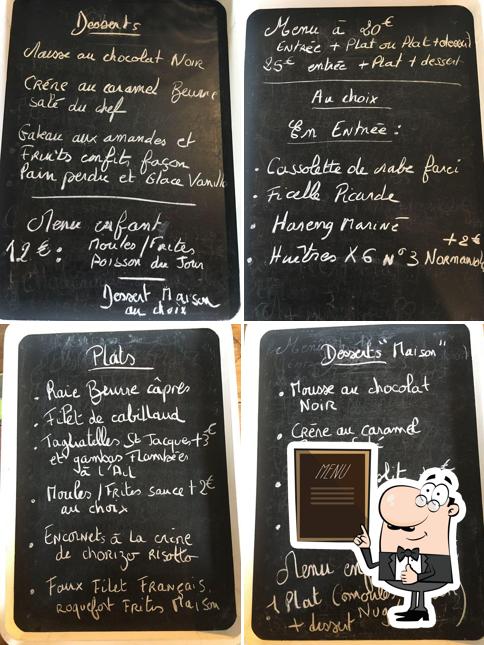 Desserts
Mousse au chocolat Noir
Crème au caramel Beurre
salé du chef
Gateau aux amandes et
Fruits confits façon
Pain perdu et Glace Vanille
Menu enfant
12€ : Moules/Frites
Poisson du Jour
Dessert Maison
au choix
Menu à 20€
Entrée + Plat ou Plat + dessert
25€ entrée + Plat + dessert
Au choix
En Entrée :
. Cassolette de crabe farci
. Ficelle Picarde
. Hareng Mariné
+2€
. Huîtres X6 N°3 Normandie
Plats
. Raie Beurre câpres
. Filet de cabillaud
. Tagliatelles St Jacques +3€
et gambas Flambées
à l'Ail
. Moules/Frites sauce +2€
au choix
. Encornets à la crème
de chorizo Risotto
. Faux Filet Français,
roquefort Frites Maison
Desserts "Maison"
. Mousse au chocolat
Noir
. Crème au caramel
MENU
Menu en
1 Plat
+ dessert